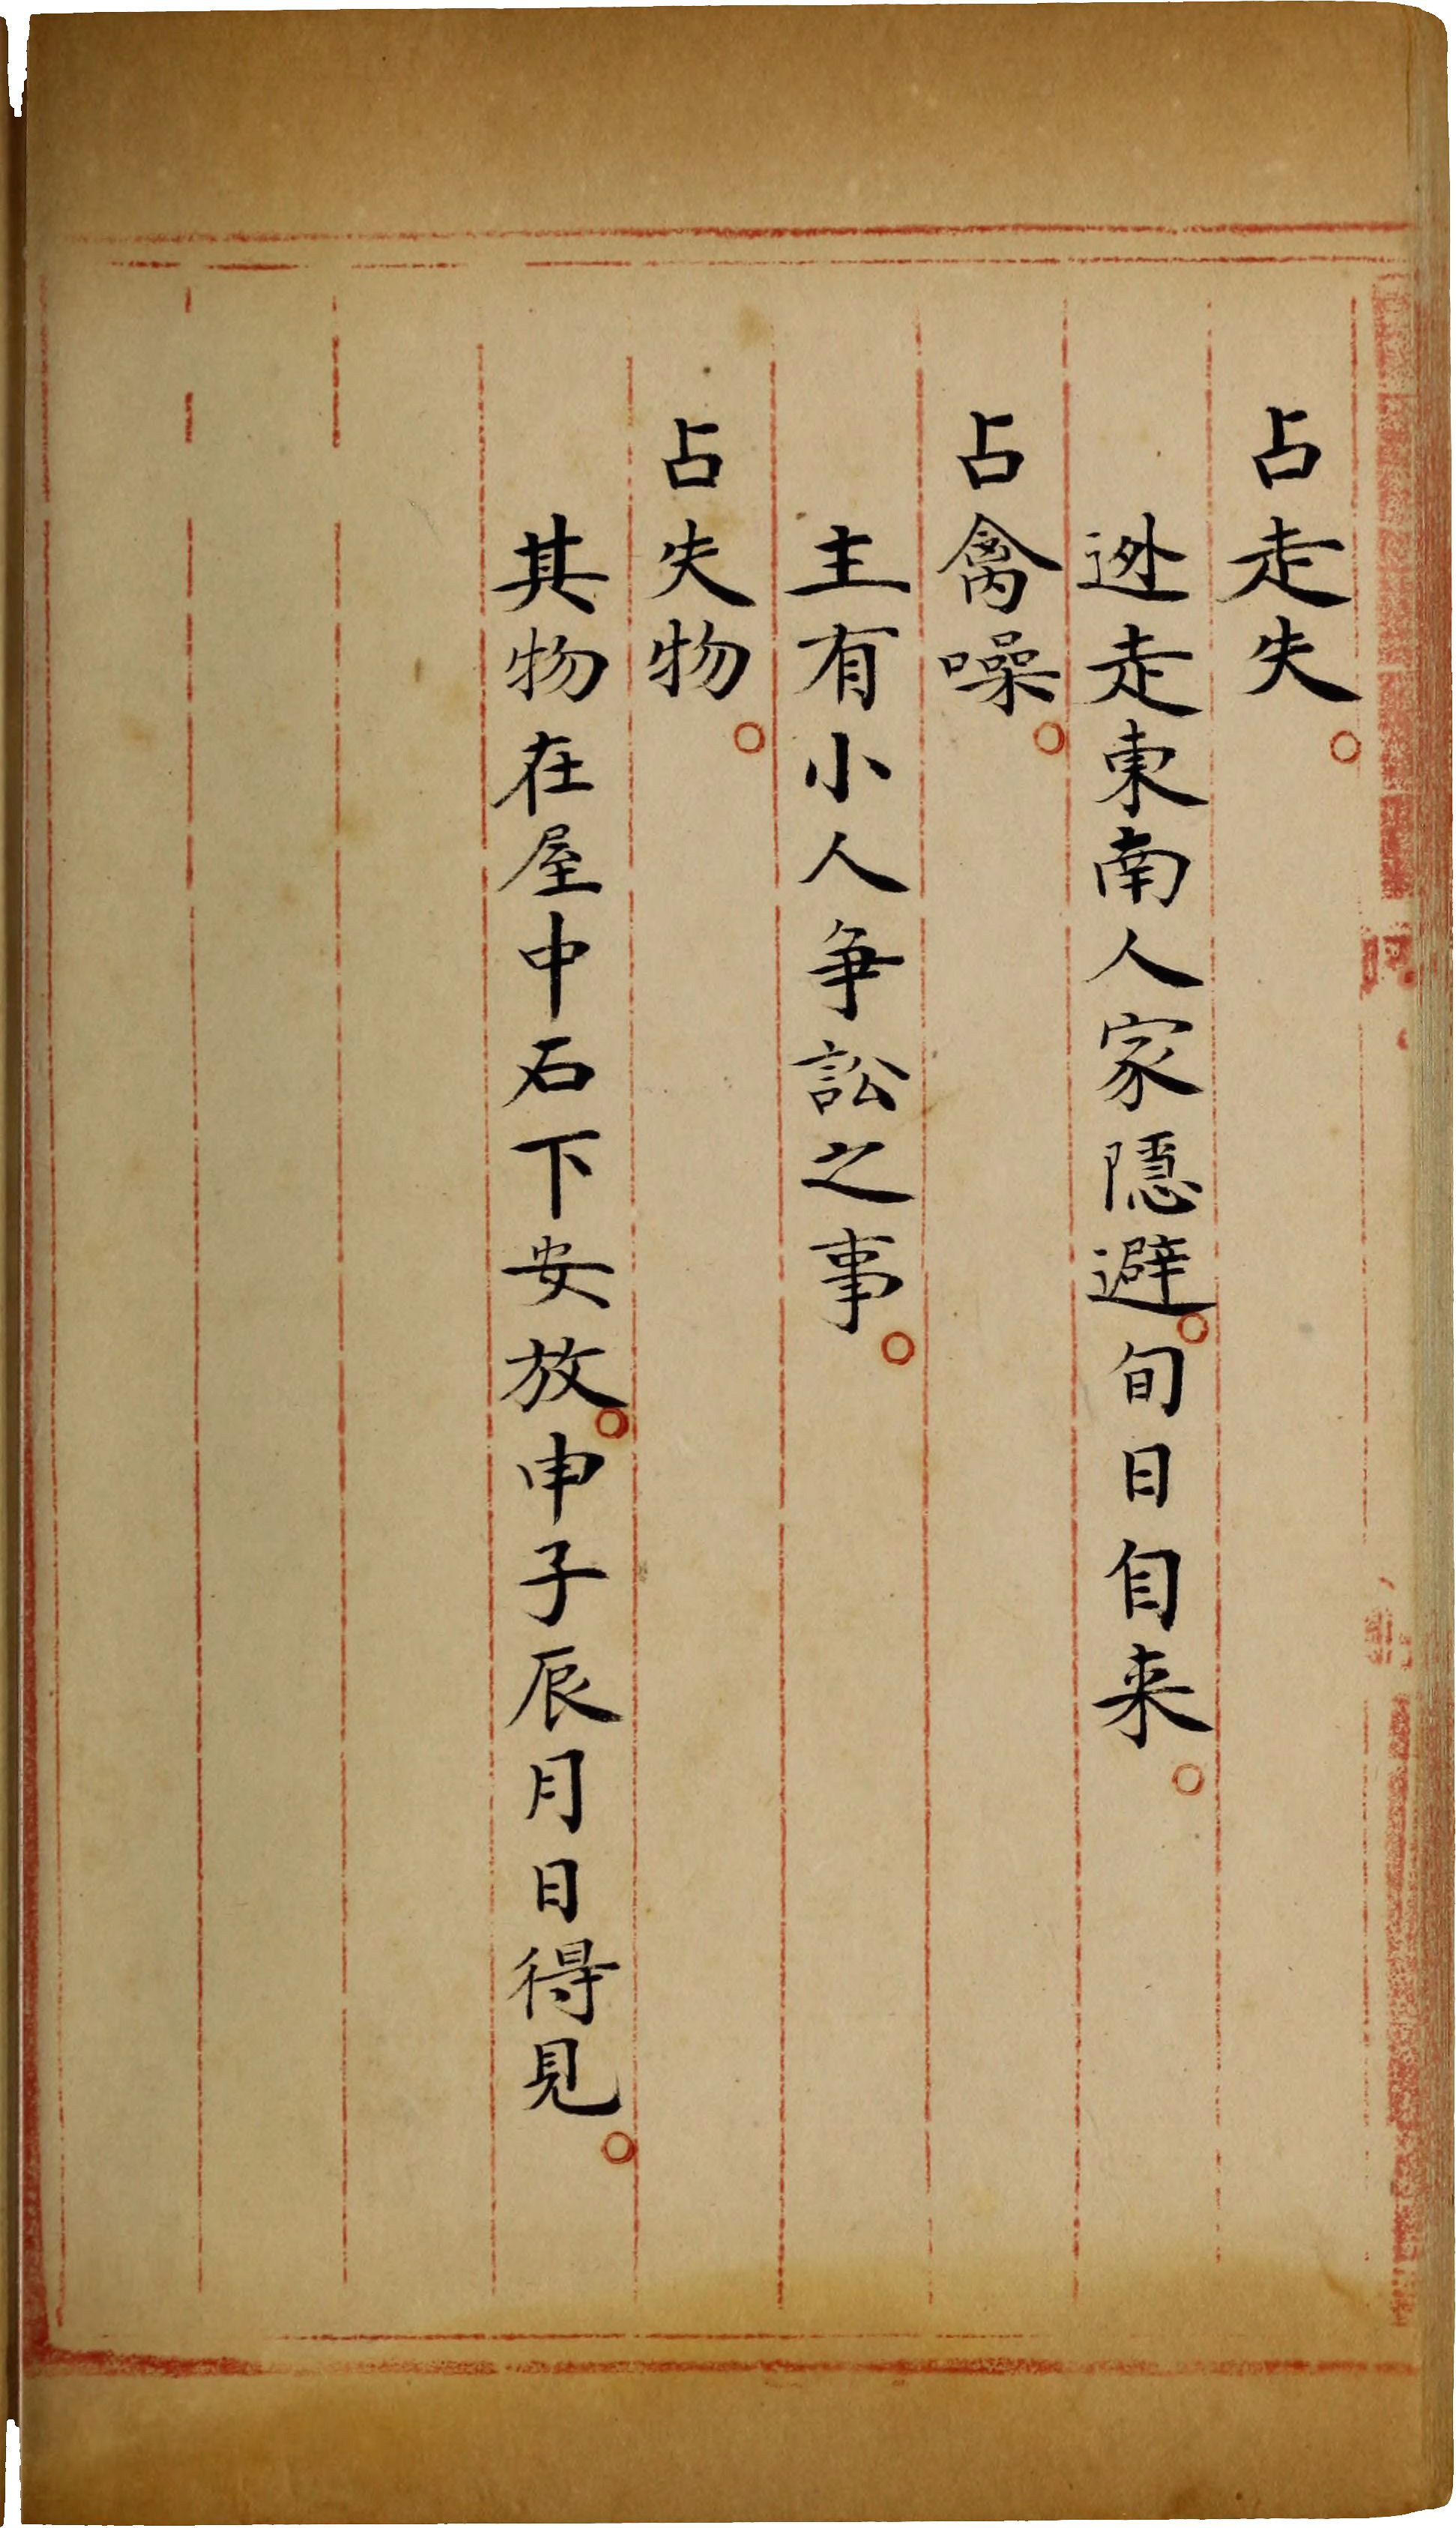 占走失。
迯走東南人家隱避。旬日自来。
占禽噪。
主有小人争訟之事。
占失物。
其物在屋中石下安放。申子辰月日得見。